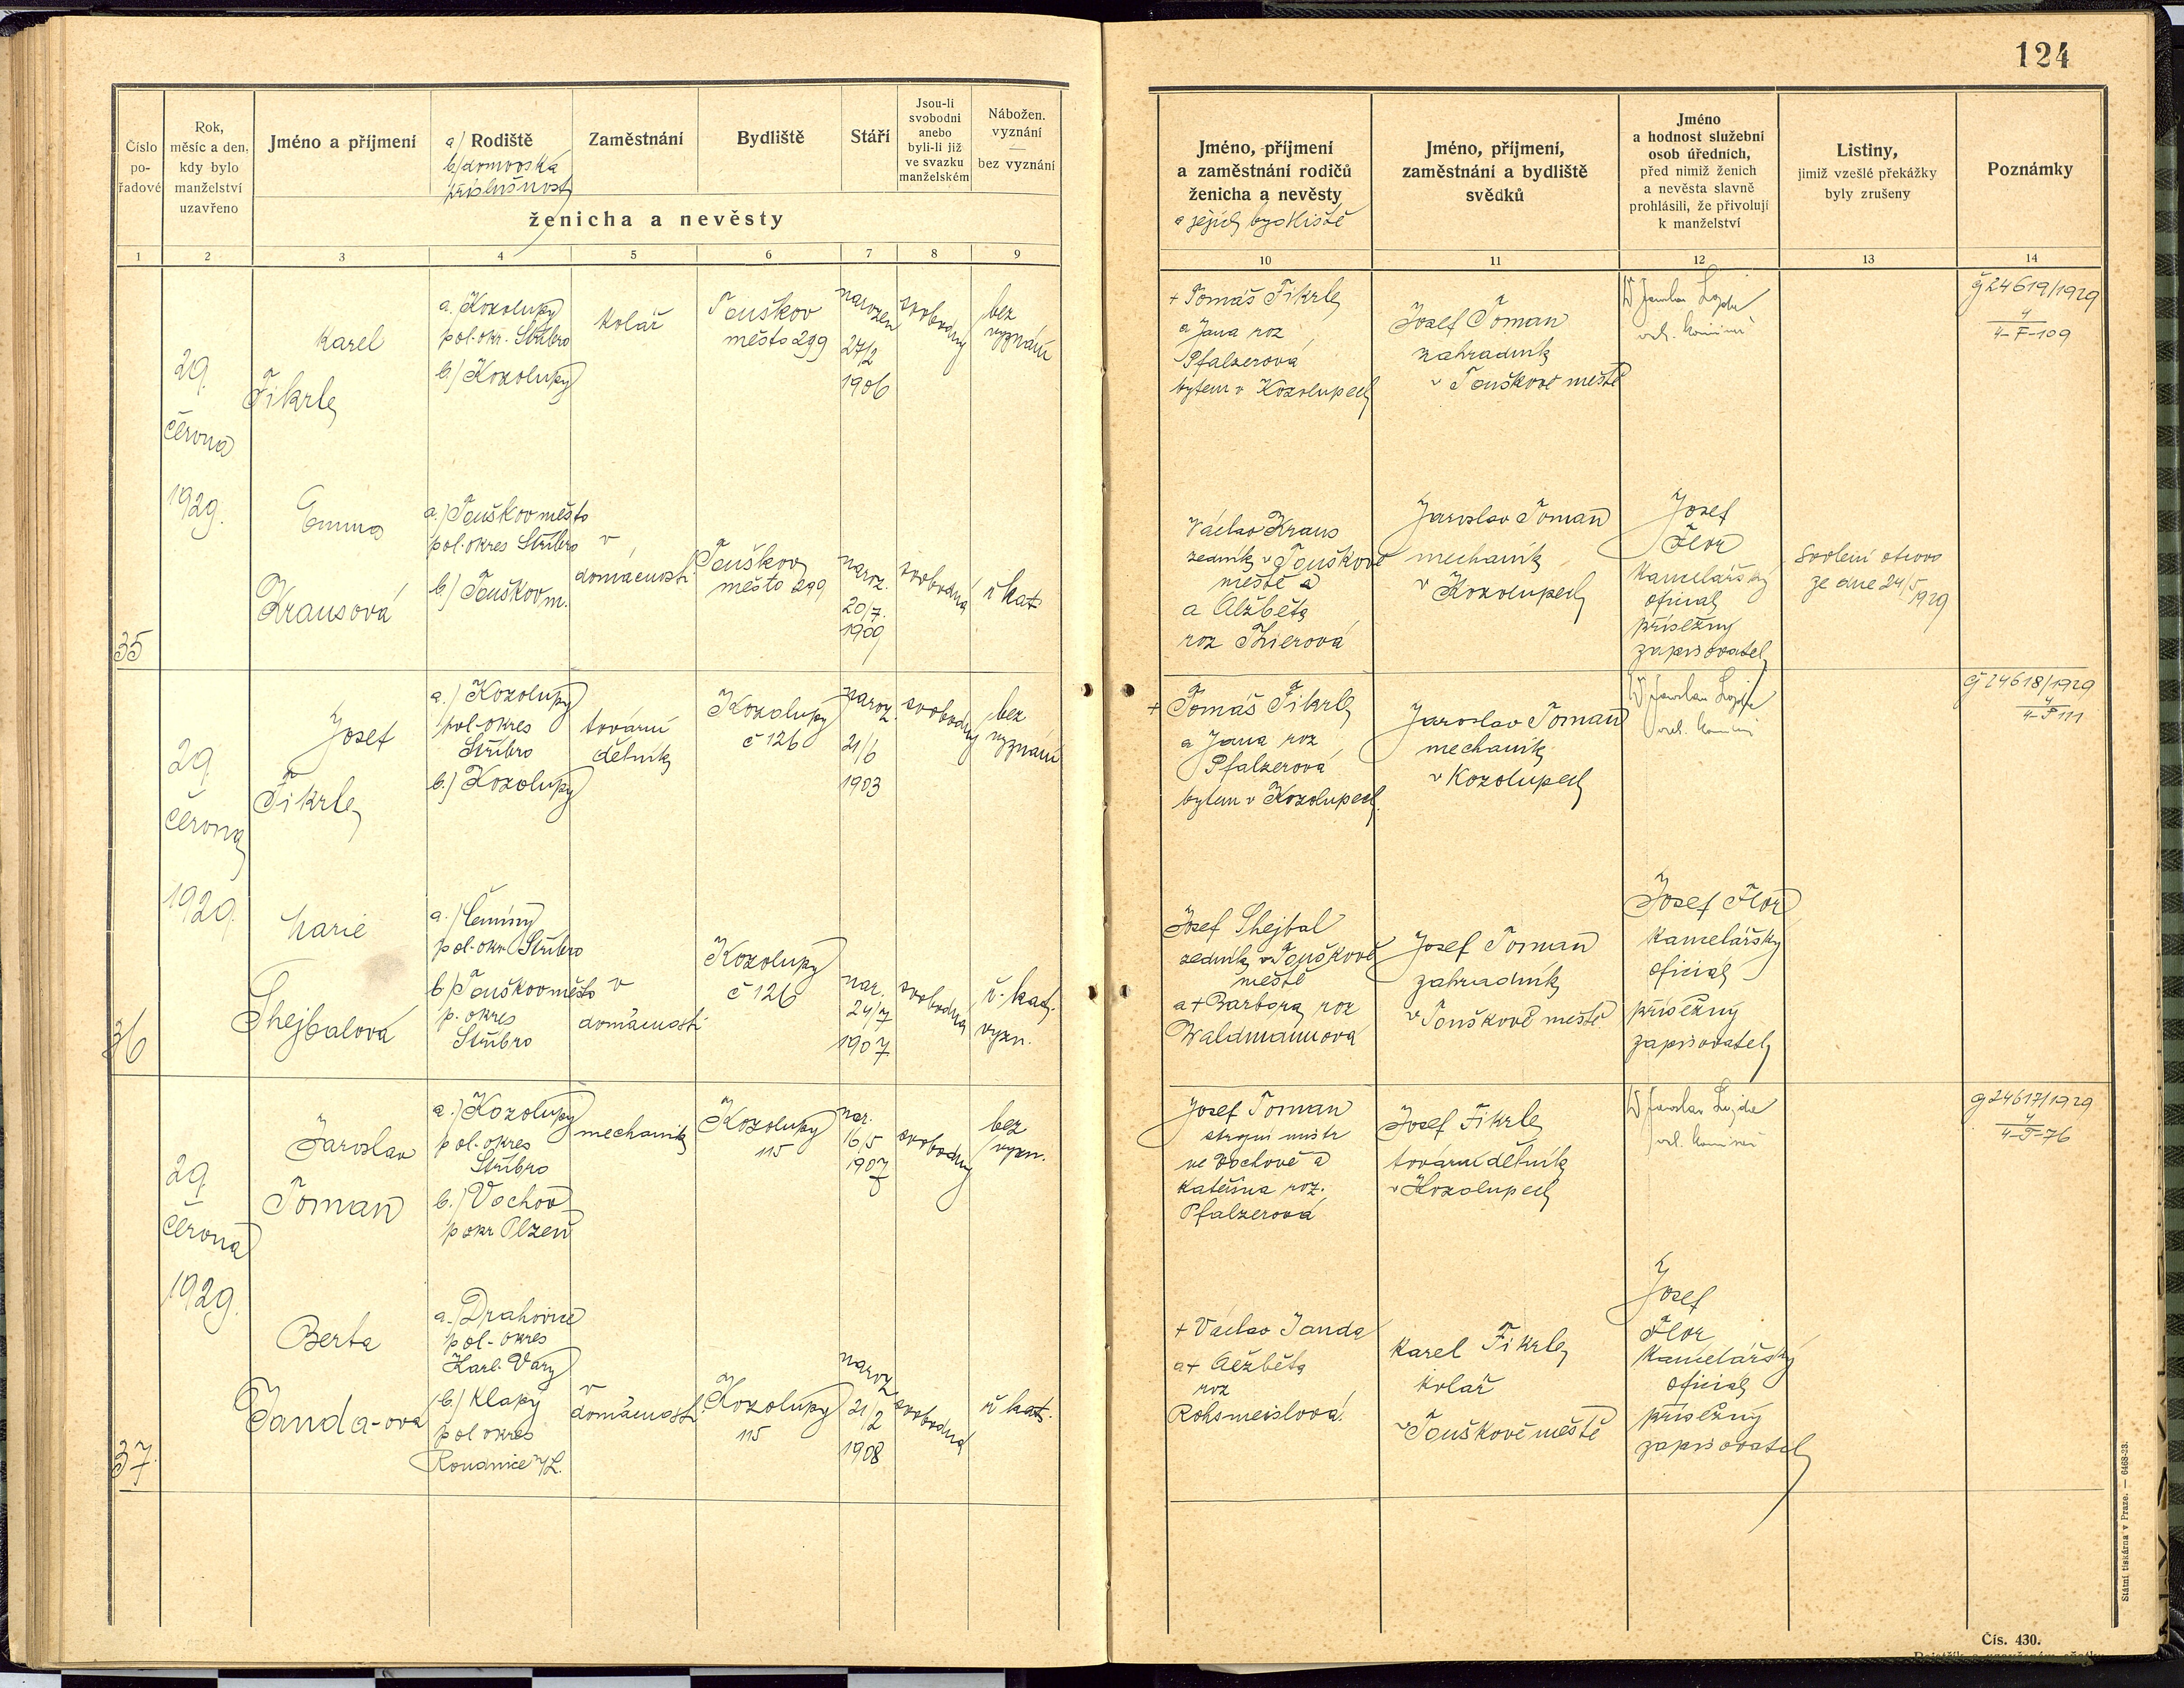 124
Číslo po-řadové
Rok, měsíc a den, kdy bylo manželství uzavřeno
Jméno a příjmení
a/ Rodiště
b/ domovská
příslušnost
Zaměstnání
Bydliště
Stáří
Jsou-li svobodni anebo byli-li již ve svazku manželském
Nábožen. vyznání — bez vyznání
ženicha a nevěsty
Jméno, příjmení
a zaměstnání rodičů
ženicha a nevěsty
a jejich bydliště
Jméno, příjmení,
zaměstnání a bydliště
svědků
Jméno
a hodnost služební
osob úředních,
před nimiž ženich
a nevěsta slavně
prohlásili, že přivolují
k manželství
Listiny,
jimiž vzešlé překážky
byly zrušeny
Poznámky
1 2 3 4 5 6 7 8 9 10 11 12 13 14
35
29.
června
1929.
Karel
Fikrle
a./ Kozolupy
pol. okr. Stříbro
b./ Kozolupy
kolář
Touškov
město 299
narozen
27/2
1906
svobodný
bez
vyznání
+ Tomáš Fikrle
a Jana roz
Pfalzerová
bytem v Kozolupech
Josef Toman
zahradník
v Touškově městě
č 24619/1929
4
4-F-109
Emma
Krausová
a.) Touškov město
pol. okres Stříbro
b.) Touškov m.
v
domácnosti
Touškov
město 299
naroz.
20/7.
1909
svobodná
ř kat
Václav Kraus
zedník v Touškově
městě a
a Alžběta
roz Thierová
Jaroslav Toman
mechanik
v Kozolupech
Josef
Flor
kancelářský
oficiál
přísežný
zapisovatel
Svolení otcovo
ze dne 24/5
1929
36
29.
června
1929.
Josef
Fikrle
a.) Kozolupy
pol. okres
Stříbro
b.) Kozolupy
tovární
dělník
Kozolupy
č 126
naroz.
21/6
1903
svobodný
bez
vyznání
+ Tomáš Fikrle
a Jana roz
Pfalzerová
bytem v Kozolupech
Jaroslav Toman
mechanik
v Kozolupech
č 24618/1929
4
Marie
Shejbalová
a.)
pol. okr. Stříbro
b) Touškov město
p. okres
Stříbro
v
domácnosti
Kozolupy
č 126
nar.
24/7
1907
svobodná
ř. kat.
vyzn.
Josef Shejbal
zedník v Touškově
městě
a + Barbora roz
Waldmannová
Josef Toman
zahradník
v Touškově městě
Josef Flor
kancelářský
oficiál
přísežný
zapisovatel
37.
29.
června
1929.
Jaroslav
Toman
a.) Kozolupy
pol. okres
Stříbro
b.) Vochov
p okr Plzeň
mechanik
Kozolupy
115
nar.
16/5
1907
svobodný
bez
vyzn.
Josef Toman
strojní mistr
ve Vochově a
Kateřina roz.
Pfalzerová
Josef Fikrle
tovární dělník
v Kozolupech
č 24617/1929
4
4-T-76
Berta
Janda-ova
a./ Drahovice
pol. okres
Karl. Vary
b.) Klapý
pol okres
Roudnice n/L.
v
domácnosti
Kozolupy
115
naroz
21/2
1908
svobodná
ř kat.
+ Václav Janda
a + Alžběta
roz
Rohsmeislová
Karel Fikrle
kolář
v Touškově městě
Josef
Flor
kancelářský
oficiál
přísežný
zapisovatel
Státní tiskárna v Praze. — 6468-28.
Čís. 430.